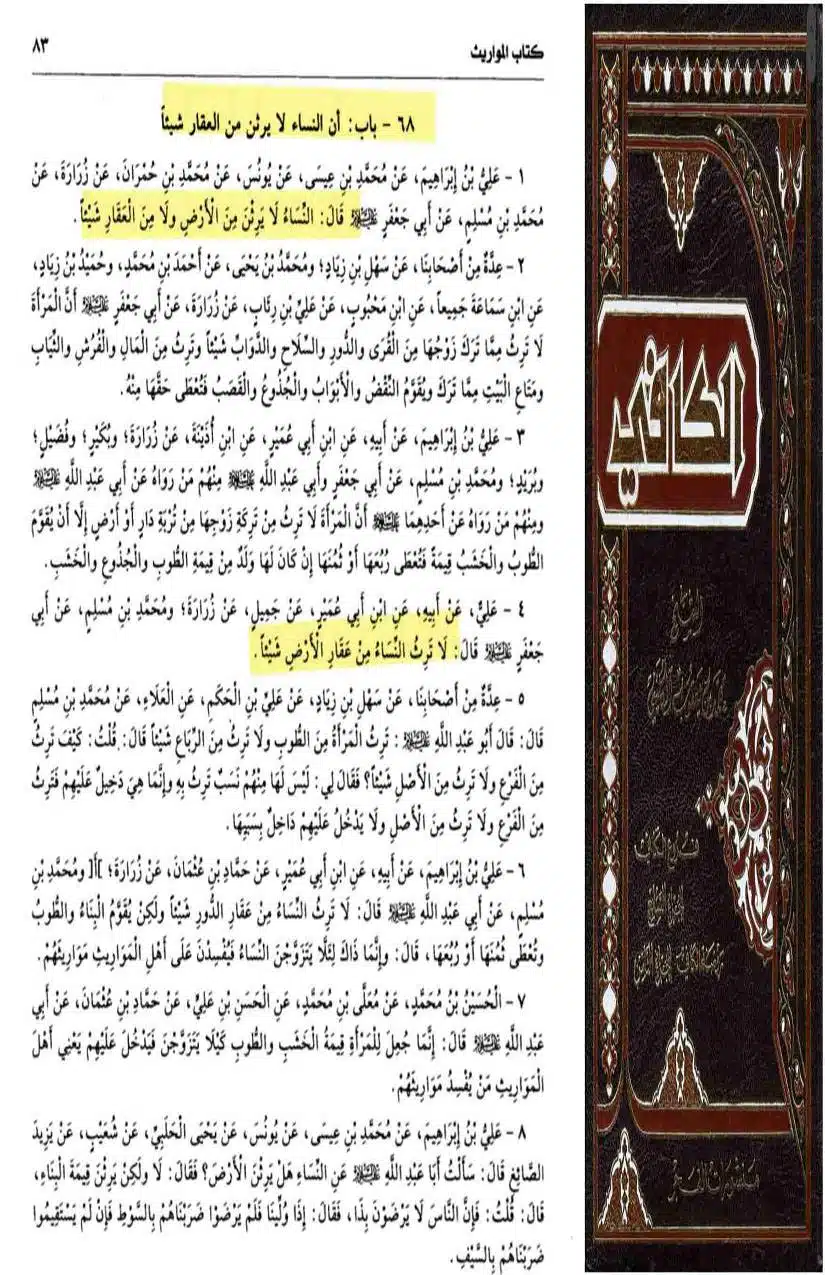 كتاب المواريث
٨٣
٦٨ - باب: أن النساء لا يرثن من العقار شيئاً
١ - عَلِيُّ بْنُ إِبْرَاهِيمَ، عَنْ مُحَمَّدِ بْنِ عِيسَى، عَنْ يُونُسَ، عَنْ مُحَمَّدِ بْنِ حُمْرَانَ، عَنْ زُرَارَةَ، عَنْ
مُحَمَّدِ بْنِ مُسْلِمٍ، عَنْ أَبِي جَعْفَرٍ عليه السلام قَالَ: النِّسَاءُ لَا يَرِثْنَ مِنَ الْأَرْضِ وَلَا مِنَ الْعَقَارِ شَيْئاً.
٢ - عِدَّةٌ مِنْ أَصْحَابِنَا، عَنْ سَهْلِ بْنِ زِيَادٍ؛ ومُحَمَّدُ بْنُ يَحْيَى، عَنْ أَحْمَدَ بْنِ مُحَمَّدٍ، وحُمَيْدُ بْنُ زِيَادٍ،
عَنِ ابْنِ سَمَاعَةَ جَمِيعاً، عَنِ ابْنِ مَحْبُوبٍ، عَنْ عَلِيِّ بْنِ رِئَابٍ، عَنْ زُرَارَةَ، عَنْ أَبِي جَعْفَرٍ عليه السلام أَنَّ الْمَرْأَةَ
لَا تَرِثُ مِمَّا تَرَكَ زَوْجُهَا مِنَ الْقُرَى والدُّورِ والسِّلَاحِ والدَّوَابِّ شَيْئاً وتَرِثُ مِنَ الْمَالِ والْفُرُشِ والثِّيَابِ
ومَتَاعِ الْبَيْتِ مِمَّا تَرَكَ ويُقَوَّمُ النِّقْضُ والْأَبْوَابُ والْجُذُوعُ والْقَصَبُ فَتُعْطَى حَقَّهَا مِنْهُ.
٣ - عَلِيُّ بْنُ إِبْرَاهِيمَ، عَنْ أَبِيهِ، عَنِ ابْنِ أَبِي عُمَيْرٍ، عَنِ ابْنِ أُذَيْنَةَ، عَنْ زُرَارَةَ؛ وبُكَيْرٍ؛ وفُضَيْلٍ؛
وبُرَيْدٍ؛ ومُحَمَّدِ بْنِ مُسْلِمٍ، عَنْ أَبِي جَعْفَرٍ وأَبِي عَبْدِ اللَّهِ عليه السلام مِنْهُمْ مَنْ رَوَاهُ عَنْ أَبِي عَبْدِ اللَّهِ عليه السلام
ومِنْهُمْ مَنْ رَوَاهُ عَنْ أَحَدِهِمَا عليه السلام أَنَّ الْمَرْأَةَ لَا تَرِثُ مِنْ تَرِكَةِ زَوْجِهَا مِنْ تُرْبَةِ دَارٍ أَوْ أَرْضٍ إِلَّا أَنْ يُقَوَّمَ
الطُّوبُ والْخَشَبُ قِيمَةً فَتُعْطَى رُبُعَهَا أَوْ ثُمُنَهَا إِنْ كَانَ لَهَا وَلَدٌ مِنْ قِيمَةِ الطُّوبِ والْجُذُوعِ والْخَشَبِ.
٤ - عَلِيٌّ، عَنْ أَبِيهِ، عَنِ ابْنِ أَبِي عُمَيْرٍ، عَنْ جَمِيلٍ، عَنْ زُرَارَةَ؛ ومُحَمَّدِ بْنِ مُسْلِمٍ، عَنْ أَبِي
جَعْفَرٍ عليه السلام قَالَ: لَا تَرِثُ النِّسَاءُ مِنْ عَقَارِ الْأَرْضِ شَيْئاً.
٥ - عِدَّةٌ مِنْ أَصْحَابِنَا، عَنْ سَهْلِ بْنِ زِيَادٍ، عَنْ عَلِيِّ بْنِ الْحَكَمِ، عَنِ الْعَلَاءِ، عَنْ مُحَمَّدِ بْنِ مُسْلِمٍ
قَالَ: قَالَ أَبُو عَبْدِ اللَّهِ عليه السلام: تَرِثُ الْمَرْأَةُ مِنَ الطُّوبِ ولَا تَرِثُ مِنَ الرِّبَاعِ شَيْئاً قَالَ: قُلْتُ: كَيْفَ تَرِثُ
مِنَ الْفَرْعِ ولَا تَرِثُ مِنَ الْأَصْلِ شَيْئاً؟ فَقَالَ لِي: لَيْسَ لَهَا مِنْهُمْ نَسَبٌ تَرِثُ بِهِ وإِنَّمَا هِيَ دَخِيلٌ عَلَيْهِمْ فَتَرِثُ
مِنَ الْفَرْعِ ولَا تَرِثُ مِنَ الْأَصْلِ ولَا يَدْخُلُ عَلَيْهِمْ دَاخِلٌ بِسَبَبِهَا.
٦ - عَلِيُّ بْنُ إِبْرَاهِيمَ، عَنْ أَبِيهِ، عَنِ ابْنِ أَبِي عُمَيْرٍ، عَنْ حَمَّادِ بْنِ عُثْمَانَ، عَنْ زُرَارَةَ؛ ]أ[ ومُحَمَّدِ بْنِ
مُسْلِمٍ، عَنْ أَبِي عَبْدِ اللَّهِ عليه السلام قَالَ: لَا تَرِثُ النِّسَاءُ مِنْ عَقَارِ الدُّورِ شَيْئاً ولَكِنْ يُقَوَّمُ الْبِنَاءُ والطُّوبُ
وتُعْطَى ثُمُنَهَا أَوْ رُبُعَهَا، قَالَ: وإِنَّمَا ذَاكَ لِئَلَّا يَتَزَوَّجْنَ النِّسَاءُ فَيُفْسِدْنَ عَلَى أَهْلِ الْمَوَارِيثِ مَوَارِيثَهُمْ.
٧ - الْحُسَيْنُ بْنُ مُحَمَّدٍ، عَنْ مُعَلَّى بْنِ مُحَمَّدٍ، عَنِ الْحَسَنِ بْنِ عَلِيٍّ، عَنْ حَمَّادِ بْنِ عُثْمَانَ، عَنْ أَبِي
عَبْدِ اللَّهِ عليه السلام قَالَ: إِنَّمَا جُعِلَ لِلْمَرْأَةِ قِيمَةُ الْخَشَبِ والطُّوبِ كَيْلَا يَتَزَوَّجْنَ فَيَدْخُلَ عَلَيْهِمْ يَعْنِي أَهْلَ
الْمَوَارِيثِ مَنْ يُفْسِدُ مَوَارِيثَهُمْ.
٨ - عَلِيُّ بْنُ إِبْرَاهِيمَ، عَنْ مُحَمَّدِ بْنِ عِيسَى، عَنْ يُونُسَ، عَنْ يَحْيَى الْحَلَبِيِّ، عَنْ شُعَيْبٍ، عَنْ يَزِيدَ
الصَّائِغِ قَالَ: سَأَلْتُ أَبَا عَبْدِ اللَّهِ عليه السلام عَنِ النِّسَاءِ هَلْ يَرِثْنَ الْأَرْضَ؟ فَقَالَ: لَا ولَكِنْ يَرِثْنَ قِيمَةَ الْبِنَاءِ،
قَالَ: قُلْتُ: فَإِنَّ النَّاسَ لَا يَرْضَوْنَ بِذَا، فَقَالَ: إِذَا وُلِّينَا فَلَمْ يَرْضَوْا ضَرَبْنَاهُمْ بِالسَّوْطِ فَإِنْ لَمْ يَسْتَقِيمُوا
ضَرَبْنَاهُمْ بِالسَّيْفِ.
الكافي
منشورات الفجر